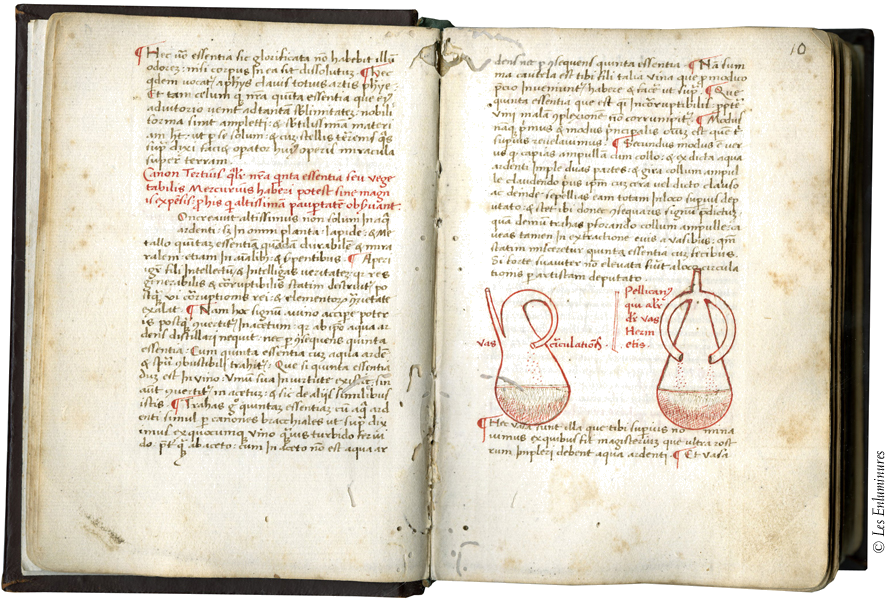 ¶ Hec nō essentia sic glorificata nō habebit illū
odorē: nisi corpus in ea sit dissolutuz. ¶ Hec
qdem vocat a phys clavis totius artis phye:
Et tam celum q̃ mā quinta essentia que ey
adiutorio venit ad tantam sublimitatez. nobili
forma sint amplecti: & subtilissimam materi
am ht: ut per se solum: & cuz stellis terrenis q̃s
supra dixi faciet opator huiꝰ operis miracula
super terram.
Canon Tertius. qlr̃ mā qnta essentia seu vege
tabilis Mercurius haberi potest sine mag
is expēsis: phis q̃ altissimam paupertatē observant.
Oncreavit altissimus non solum in aq̃
ardenti: sz in omni planta: lapide: & me
tallo quintaz essentiā quādā durabilē & mira
ralem: etiam in aīalibꝰ: & serpentibus. ¶ Aperi
igr̃ fili intellectuz & intelligas veritatez: q: res
generabilis & corruptibilis statim destruit po
stq̃ vi corruptionis rei: & elementorꝰ
exalat. ¶ Nam hoc signuz a vino accipe: poter
is postq̃ vertit in acetum: q: ab ipso aqua ar
dens distillari nequit: nec per ꝯsequens quinta
essentia: Cum quinta essentia cuz aqua ardē
& spū ꝯbustibili trahit. ¶ Que si quinta essentia
duz est in vino: vinū sua in virtute existit: sin
aut vertit in acetuz: & sic de alijs similibus
istis. ¶ Trahas g̃ quintaz essentiaz cū aq̃ ard
enti simul per canones brachiales ut supra dix
imus ex quocumq̃ vino quis turbido
do. p̃t q̃ ab aceto: cum in aceto nō est aqua ar
10
dens nec per ꝯsequens quinta essentia. ¶ Na sum
ma cautela est tibi fili talia vina que p̃ modū
p̃cio inveniunt habere & face ut supra. ¶ Que
quinta essentia que est q̃ incorruptibilis ppter
vini malā ꝯplexionē nō corrumpit. ¶ Modus
naq̃ primus & modus principalis ouz est que t̃
supius revelavimus. ¶ Secundus modus ē ver
us q: capias ampulla cum collo: & ex dicta aqua
ardenti imple duas partes & gira collum ampul
le claudendo prius ipm cuz cera vel luto clauso
ac deinde sepellias eam totam in loco supius dep
utato: & stet ibi donec ꝯsequaris signū pdictuz:
quā demū trahas pforando collum ampulle: ca
veas tamen in extractione eius a vasibus: qm̃
statim misceretur quinta essentia cuz fecibus.
Si forte suaviter nō elevata fiunt a loco circula
tionis per tūstam deputato
vas circulatiōis
Pellicanꝰ
qui alr̃
dr̃ vas
Herm
etis.
¶ Hec vasa sunt illa que tibi supius no mina
vimus ex quibus fit magisteriuz que ultra rost
rum impleri debent aqua ardenti. ¶ Et vasa
© Les Enluminures